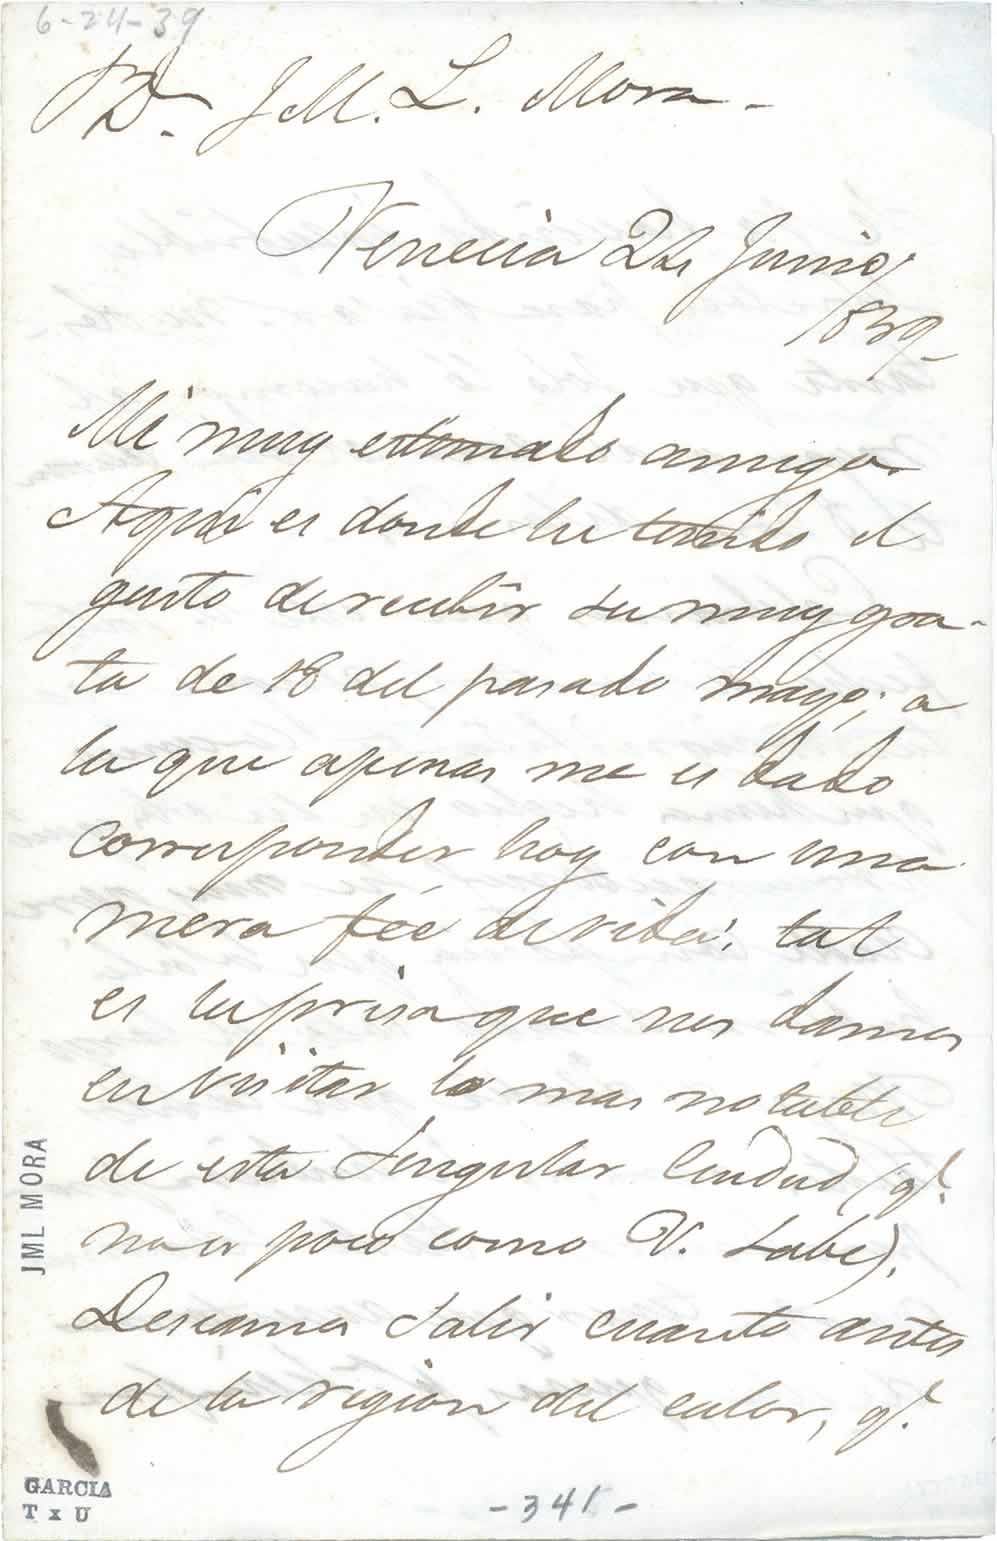 6-24-39
Dr. J M. L. Mora -
Venecia 24 Junio
1839-
Mi muy estimado amigo.
Aqui es donde he tenido el
gusto de recibir su muy gra-
ta de 18 del pasado mayo; a
la que apenas me es dado
corresponder hoy con una
mera fée de vida: tal
es la prisa que nos damos
en visitar lo mas notable
de esta singular Ciudad (q.e
no es poco como V. sabe).
Deseamos salir cuanto antes
de la region del calor, q.e
JML MORA
GARCIA
T x U
-341-